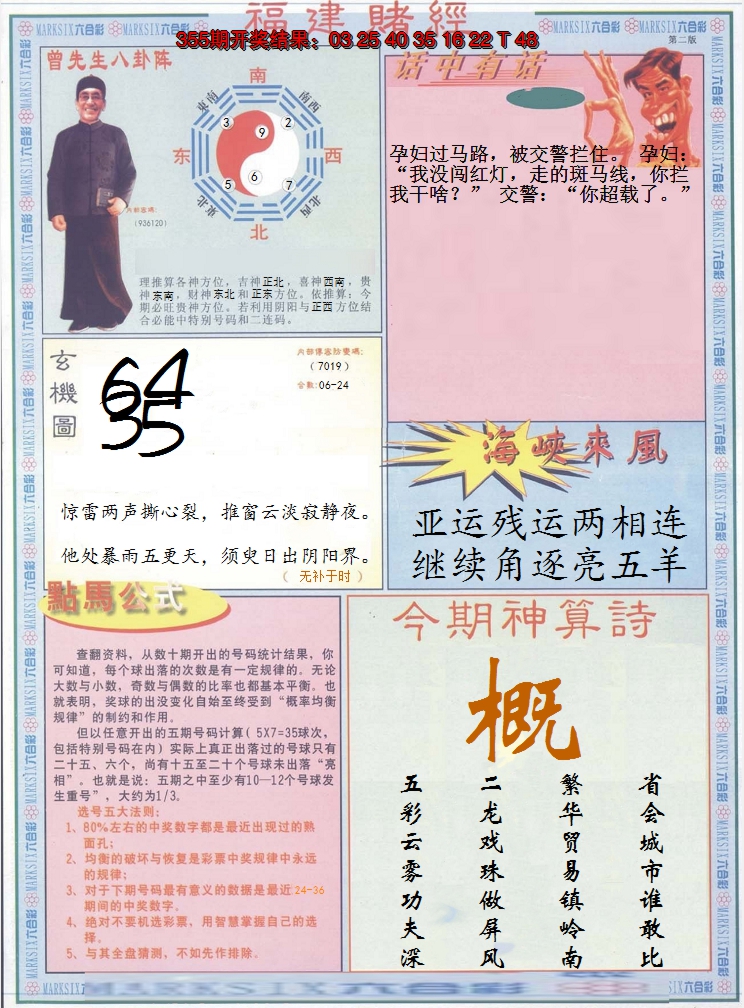 福建賭經
355期开奖结果：03 25 40 35 16 22 T 48
MARKSIX六合彩
第二版
曾先生八卦阵
南
东南
西南
3
2
9
东
西
6
5
7
东北
西北
北
内部密碼：
（936120）
理推算各神方位，吉神正北，喜神西南，贵
神东南，财神东北和正东方位。依推算：今
期必旺贵神方位。若利用阴阳与正西方位结
合必能中特别号码和二连码。
话中有话
孕妇过马路，被交警拦住。 孕妇：
“我没闯红灯，走的斑马线，你拦
我干啥？” 交警：“你超载了。”
玄機圖
64
35
内部傳密防變碼：
（7019）
合數:06-24
惊雷两声撕心裂，推窗云淡寂静夜。
他处暴雨五更天，须臾日出阴阳界。
（ 无补于时 ）
海峽來風
亚运残运两相连
继续角逐亮五羊
點馬公式
查翻资料，从数十期开出的号码统计结果，你
可知道，每个球出落的次数是有一定规律的。无论
大数与小数，奇数与偶数的比率也都基本平衡。也
就表明，奖球的出没变化自始至终受到“概率均衡
规律”的制约和作用。
但以任意开出的五期号码计算( 5X7=35球次，
包括特别号码在内) 实际上真正出落过的号球只有
二十五、六个，尚有十五至二十个号球未出落“亮
相”。也就是说：五期之中至少有10—12个号球发
生重号”，大约为1/3。
选号五大法则：
1、80%左右的中奖数字都是最近出现过的熟
面孔；
2、均衡的破坏与恢复是彩票中奖规律中永远
的规律；
3、对于下期号码最有意义的数据是最近24-36
期间的中奖数字。
4、绝对不要机选彩票，用智慧掌握自己的选
择。
5、与其全盘猜测，不如先作排除。
今期神算詩
概
省会城市谁敢比
繁华贸易镇岭南
二龙戏珠做屏风
五彩云雾功夫深